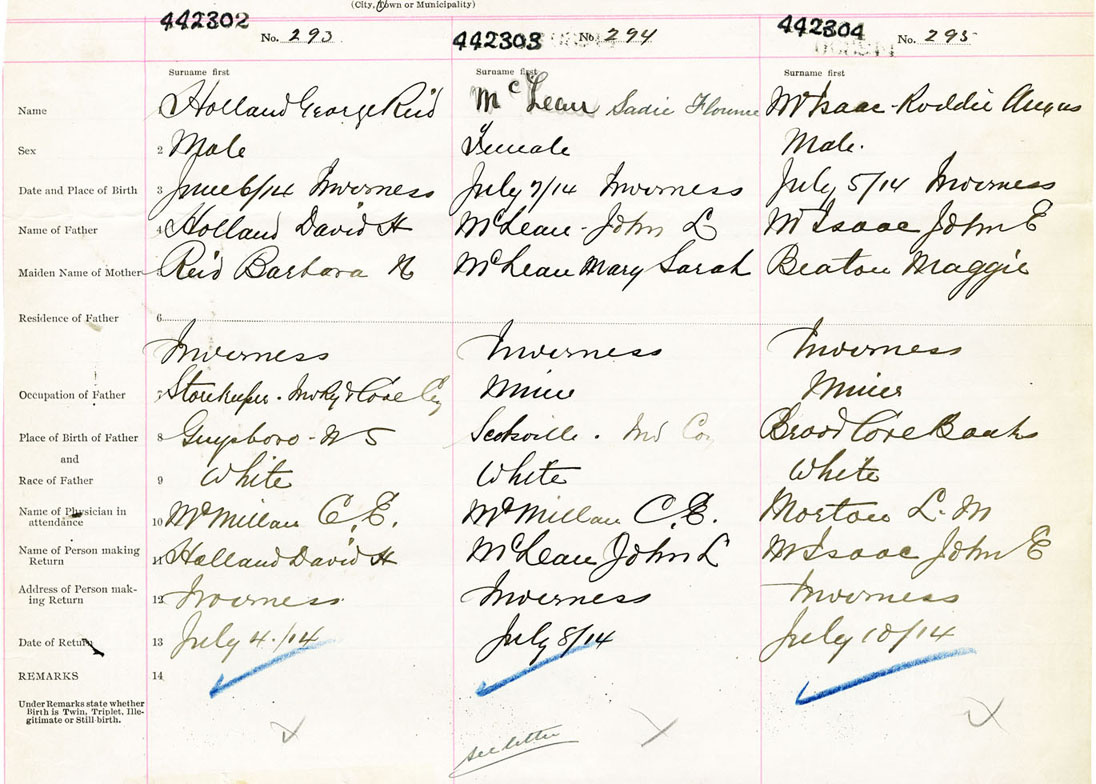 (City, Town or Municipality)
442302 No. 293 442303 No. 294 442304 No. 295
Surname first Surname first Surname first
Name Holland George Reid McLean Sadie Florence McIsaac - Roddie Angus
Sex 2 Male Female Male.
Date and Place of Birth 3 June 6/14 Inverness July 7/14 Inverness July 5/14 Inverness
Name of Father 4 Holland David H McLean - John L McIsaac John E
Maiden Name of Mother Reid Barbara McLean Mary Sarah Beaton Maggie
Residence of Father 6
Inverness Inverness Inverness
Occupation of Father 7 Storekeeper. Miner Miner
Place of Birth of Father 8 Guysboro - N S Scotsville. Inv Co. Broad Cove Banks
and
Race of Father 9 White White White
Name of Physician in
attendance 10 McMillan C. E. McMillan C. E. Morton L. M
Name of Person making
Return 11 Holland David H McLean John L McIsaac John E
Address of Person mak-
ing Return 12 Inverness Inverness Inverness
Date of Return 13 July 4/14 July 8/14 July 10/14
REMARKS 14
Under Remarks state whether
Birth is Twin, Triplet, Ille-
gitimate or Still-birth.
see letter